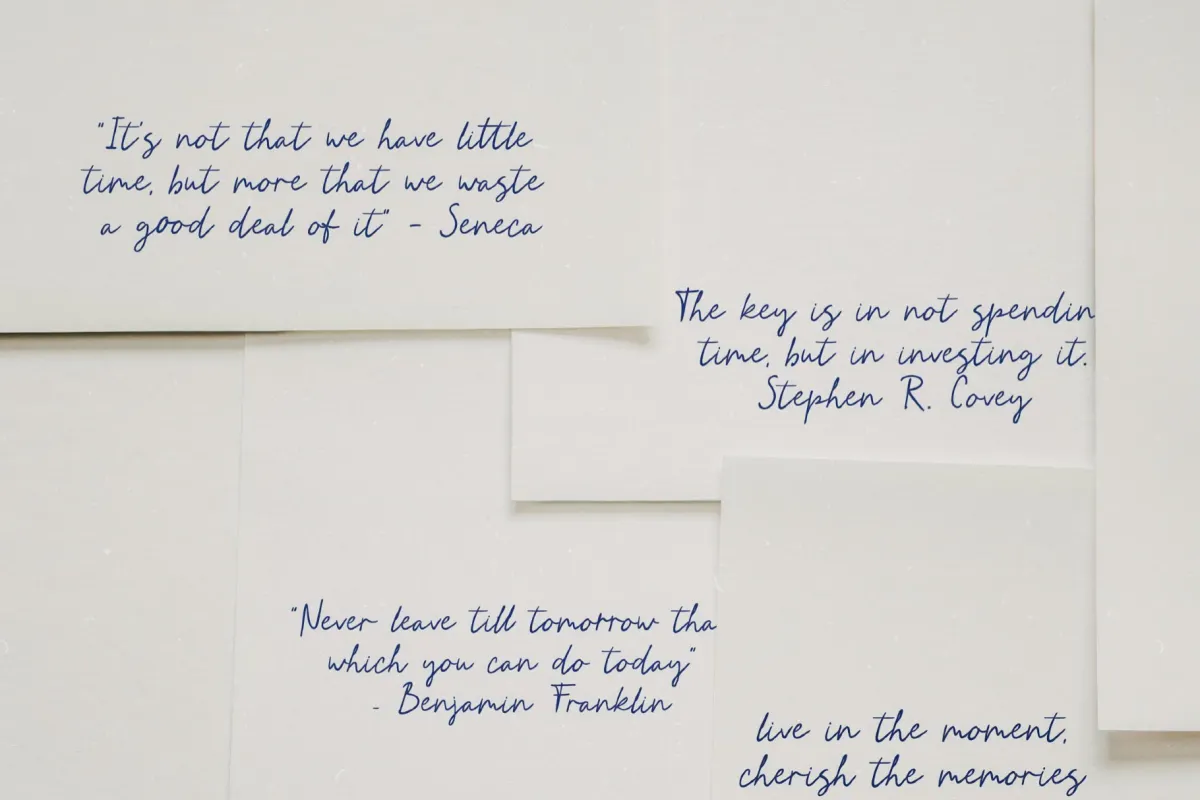 "It's not that we have little
time, but more that we waste
a good deal of it" - Seneca
The key is in not spendin
time, but in investing it.
Stephen R. Covey
"Never leave till tomorrow tha
which you can do today"
- Benjamin Franklin
live in the moment,
cherish the memories